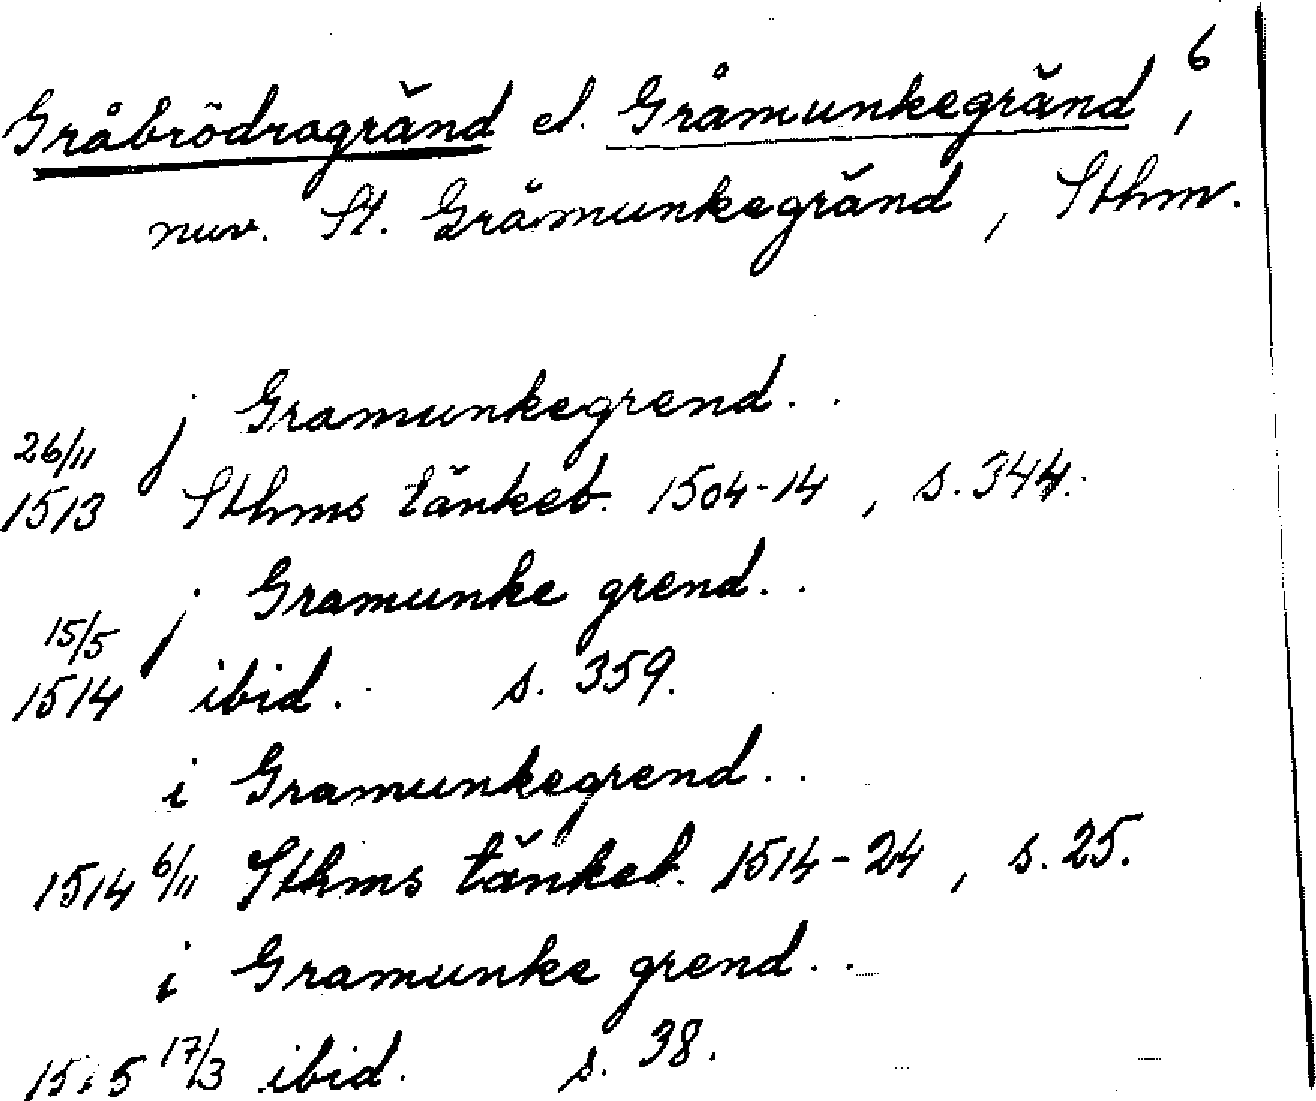 6
Gråbrödragränd el. Gråmunkegränd,
nuv. St. Gråmunkegränd, Sthm.
j Gramunkegrend. .
26/11
1513 Sthms tänkeb. 1504-14, s. 344.
j Gramunke grend. .
15/5
1514 ibid. s. 359.
i Gramunkegrend. .
1514 6/11 Sthms tänkeb. 1514-24, s. 25.
i Gramunke grend. .
1515 17/3 ibid. s. 38.